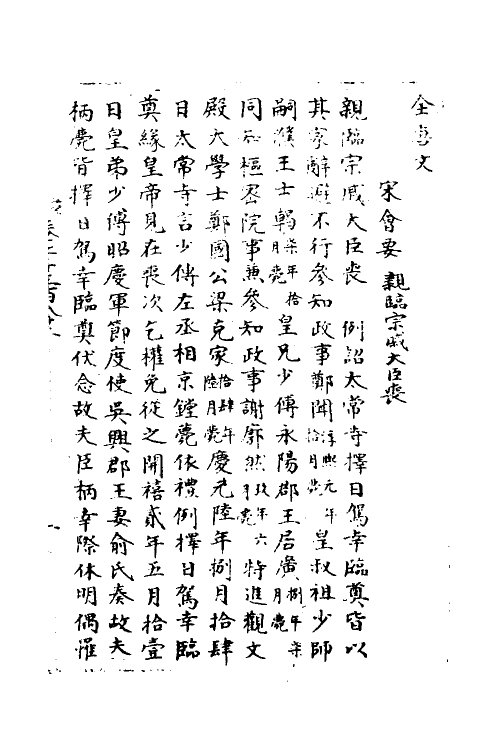 全唐文
宋會要 親臨宗戚大臣喪
親臨宗戚大臣喪 例詔太常寺擇日駕幸臨奠皆以
其家辭避不行參知政事鄭聞淳熙元年拾月薨皇叔祖少師
嗣濮王士輵柒年拾月薨皇兄少傅永陽郡王居廣捌年柒月薨
同知樞密院事兼參知政事謝廓然玖年六月薨特進觀文
殿大學士鄭國公梁克家拾肆年陸月薨慶元陸年捌月拾肆
日太常寺言少傅左丞相京鏜薨依禮例擇日駕幸臨
奠緣皇帝見在喪次乞權免從之開禧貳年五月拾壹
日皇弟少傅昭慶軍節度使吳興郡王妻俞氏奏故夫
柄薨背擇日駕幸臨奠伏念故夫臣柄幸際休明偶罹